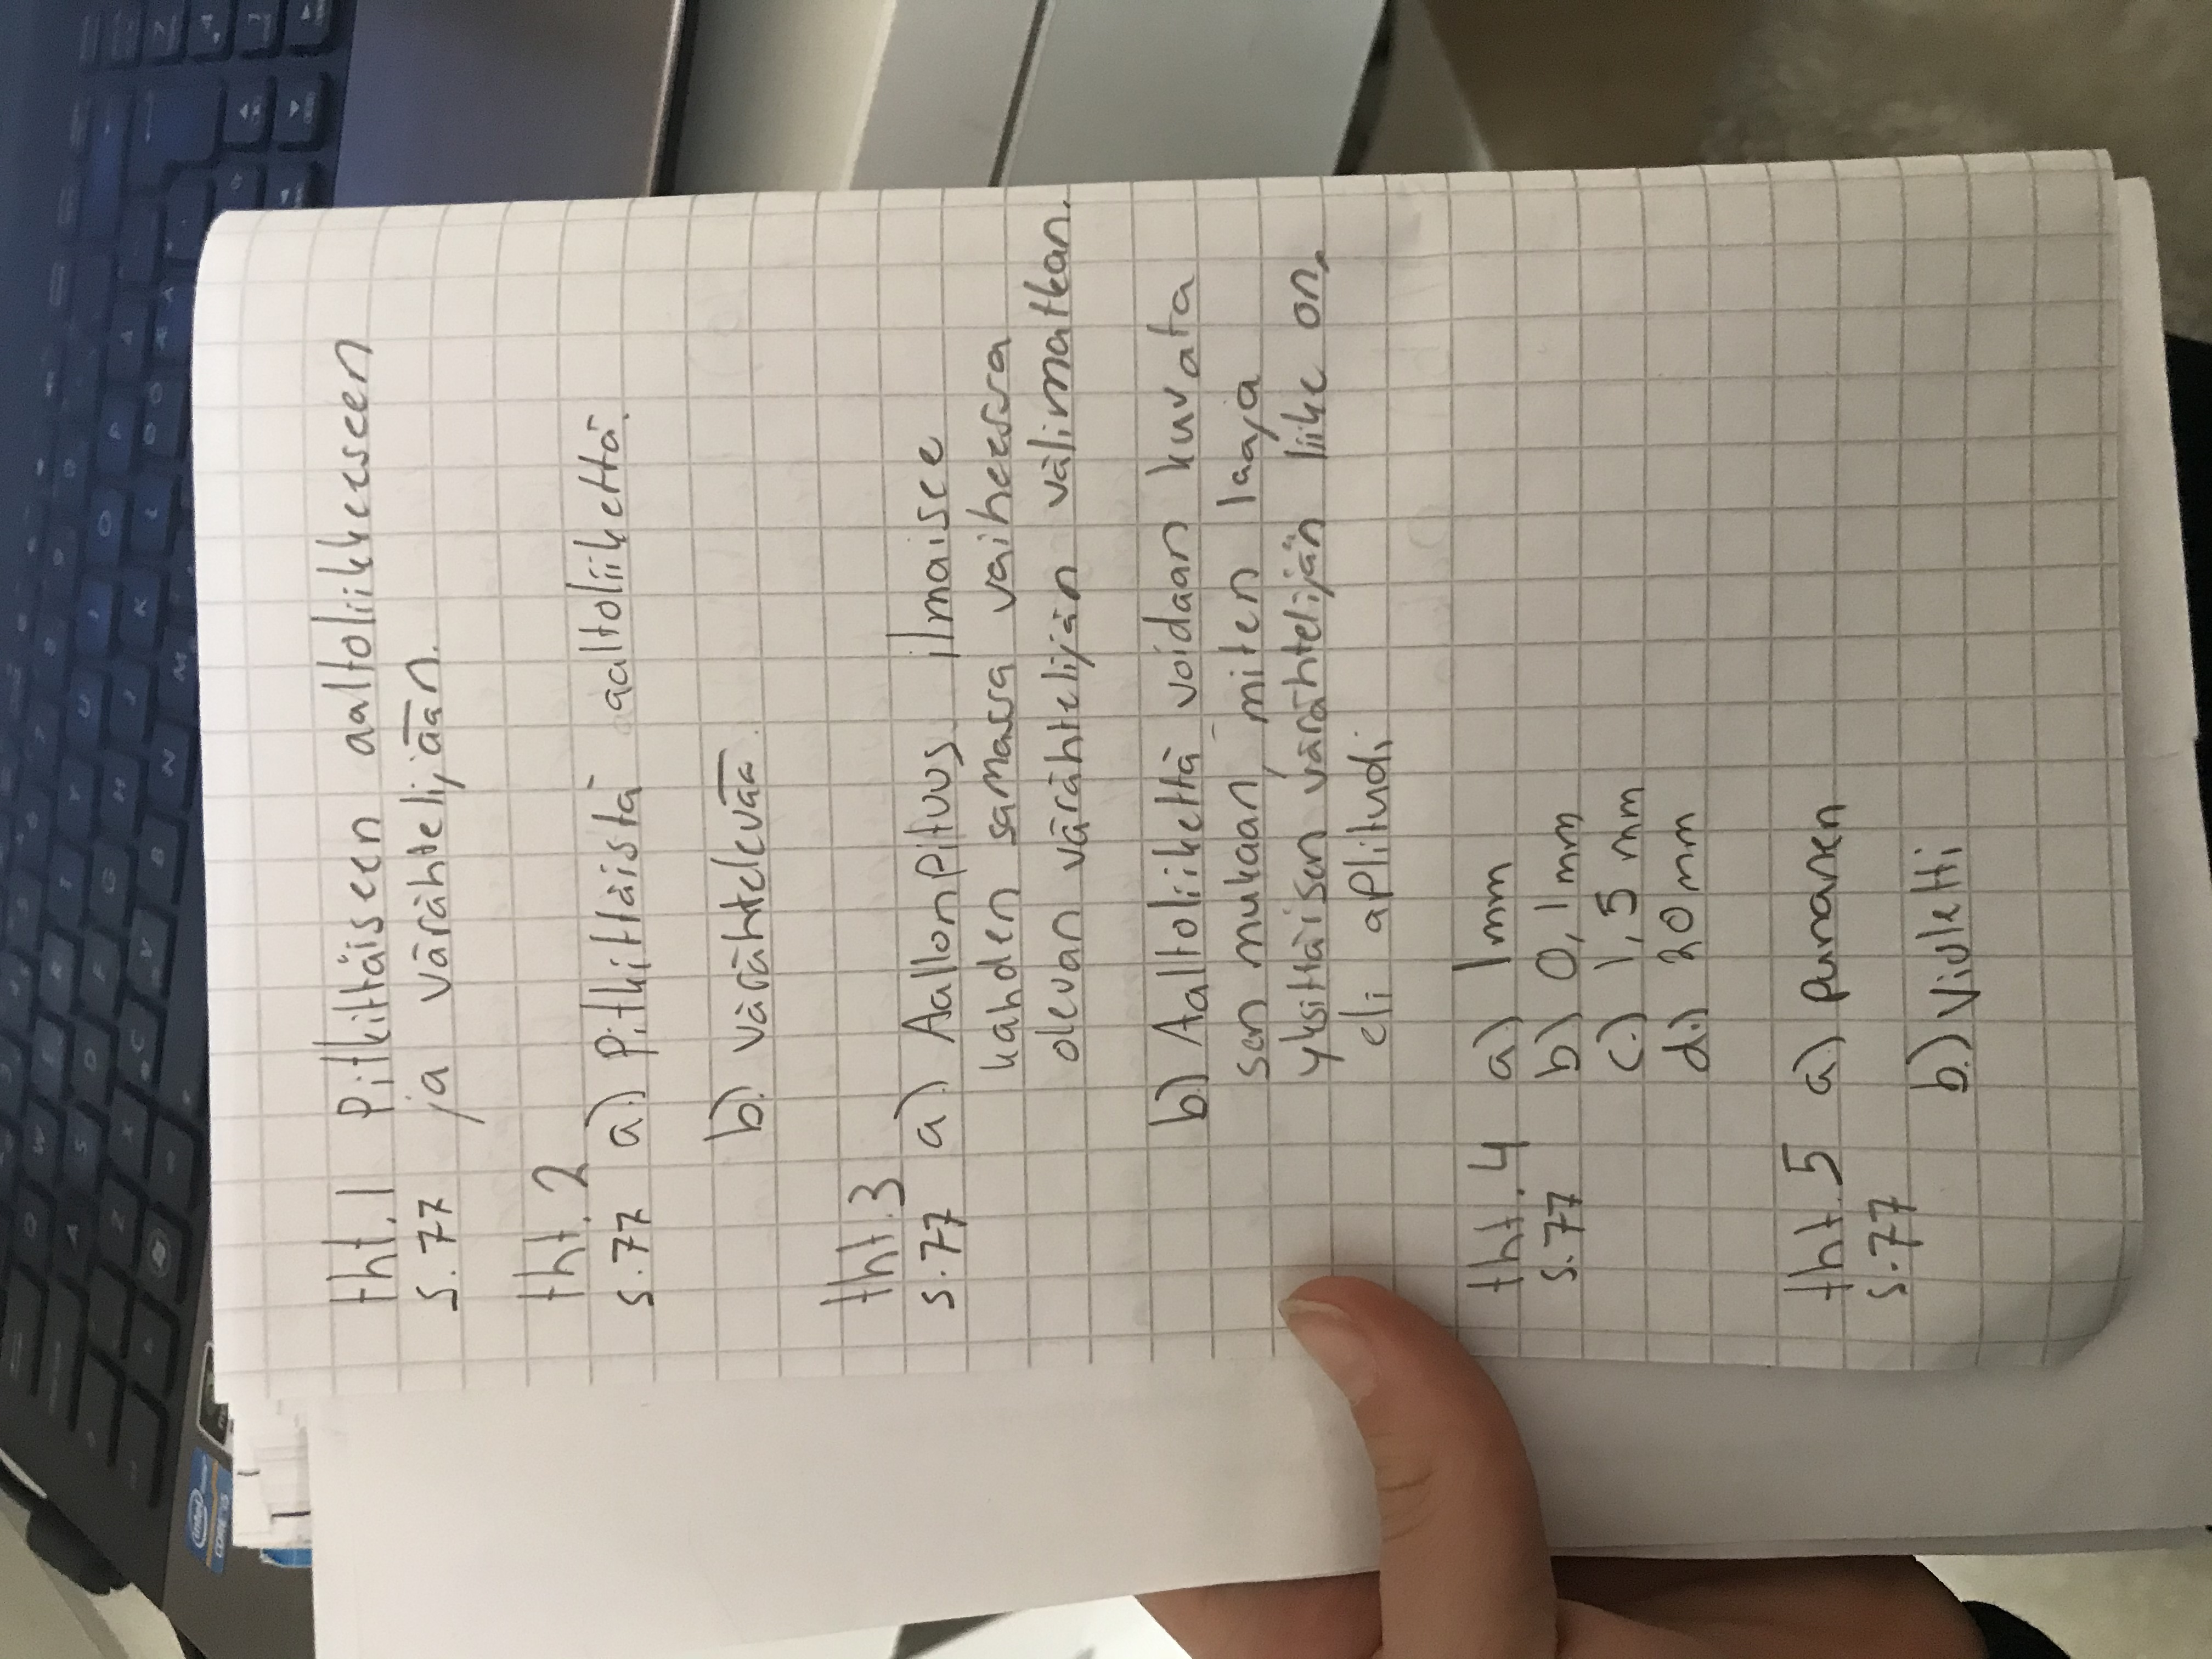 tht.1 Pitkittäiseen aaltoliikkeeseen
s.77 ja värähtelijään.
tht.2
s.77 a.) Pitkittäistä aaltoliikettä.
b.) värähtelevää.
tht.3
s.77 a.) Aallonpituus ilmaisee
kahden samassa vaiheessa
olevan värähtelijän välimatkan.
b.) Aaltoliikettä voidaan kuvata
sen mukaan, miten laaja
yksittäisen värähtelijän liike on,
eli aplitudi
tht.4 a.) 1mm
s.77 b.) 0,1mm
c.) 1,5 mm
d.) 20mm
tht.5 a.) punanen
s.77
b.) Violetti
intel
CORE i5